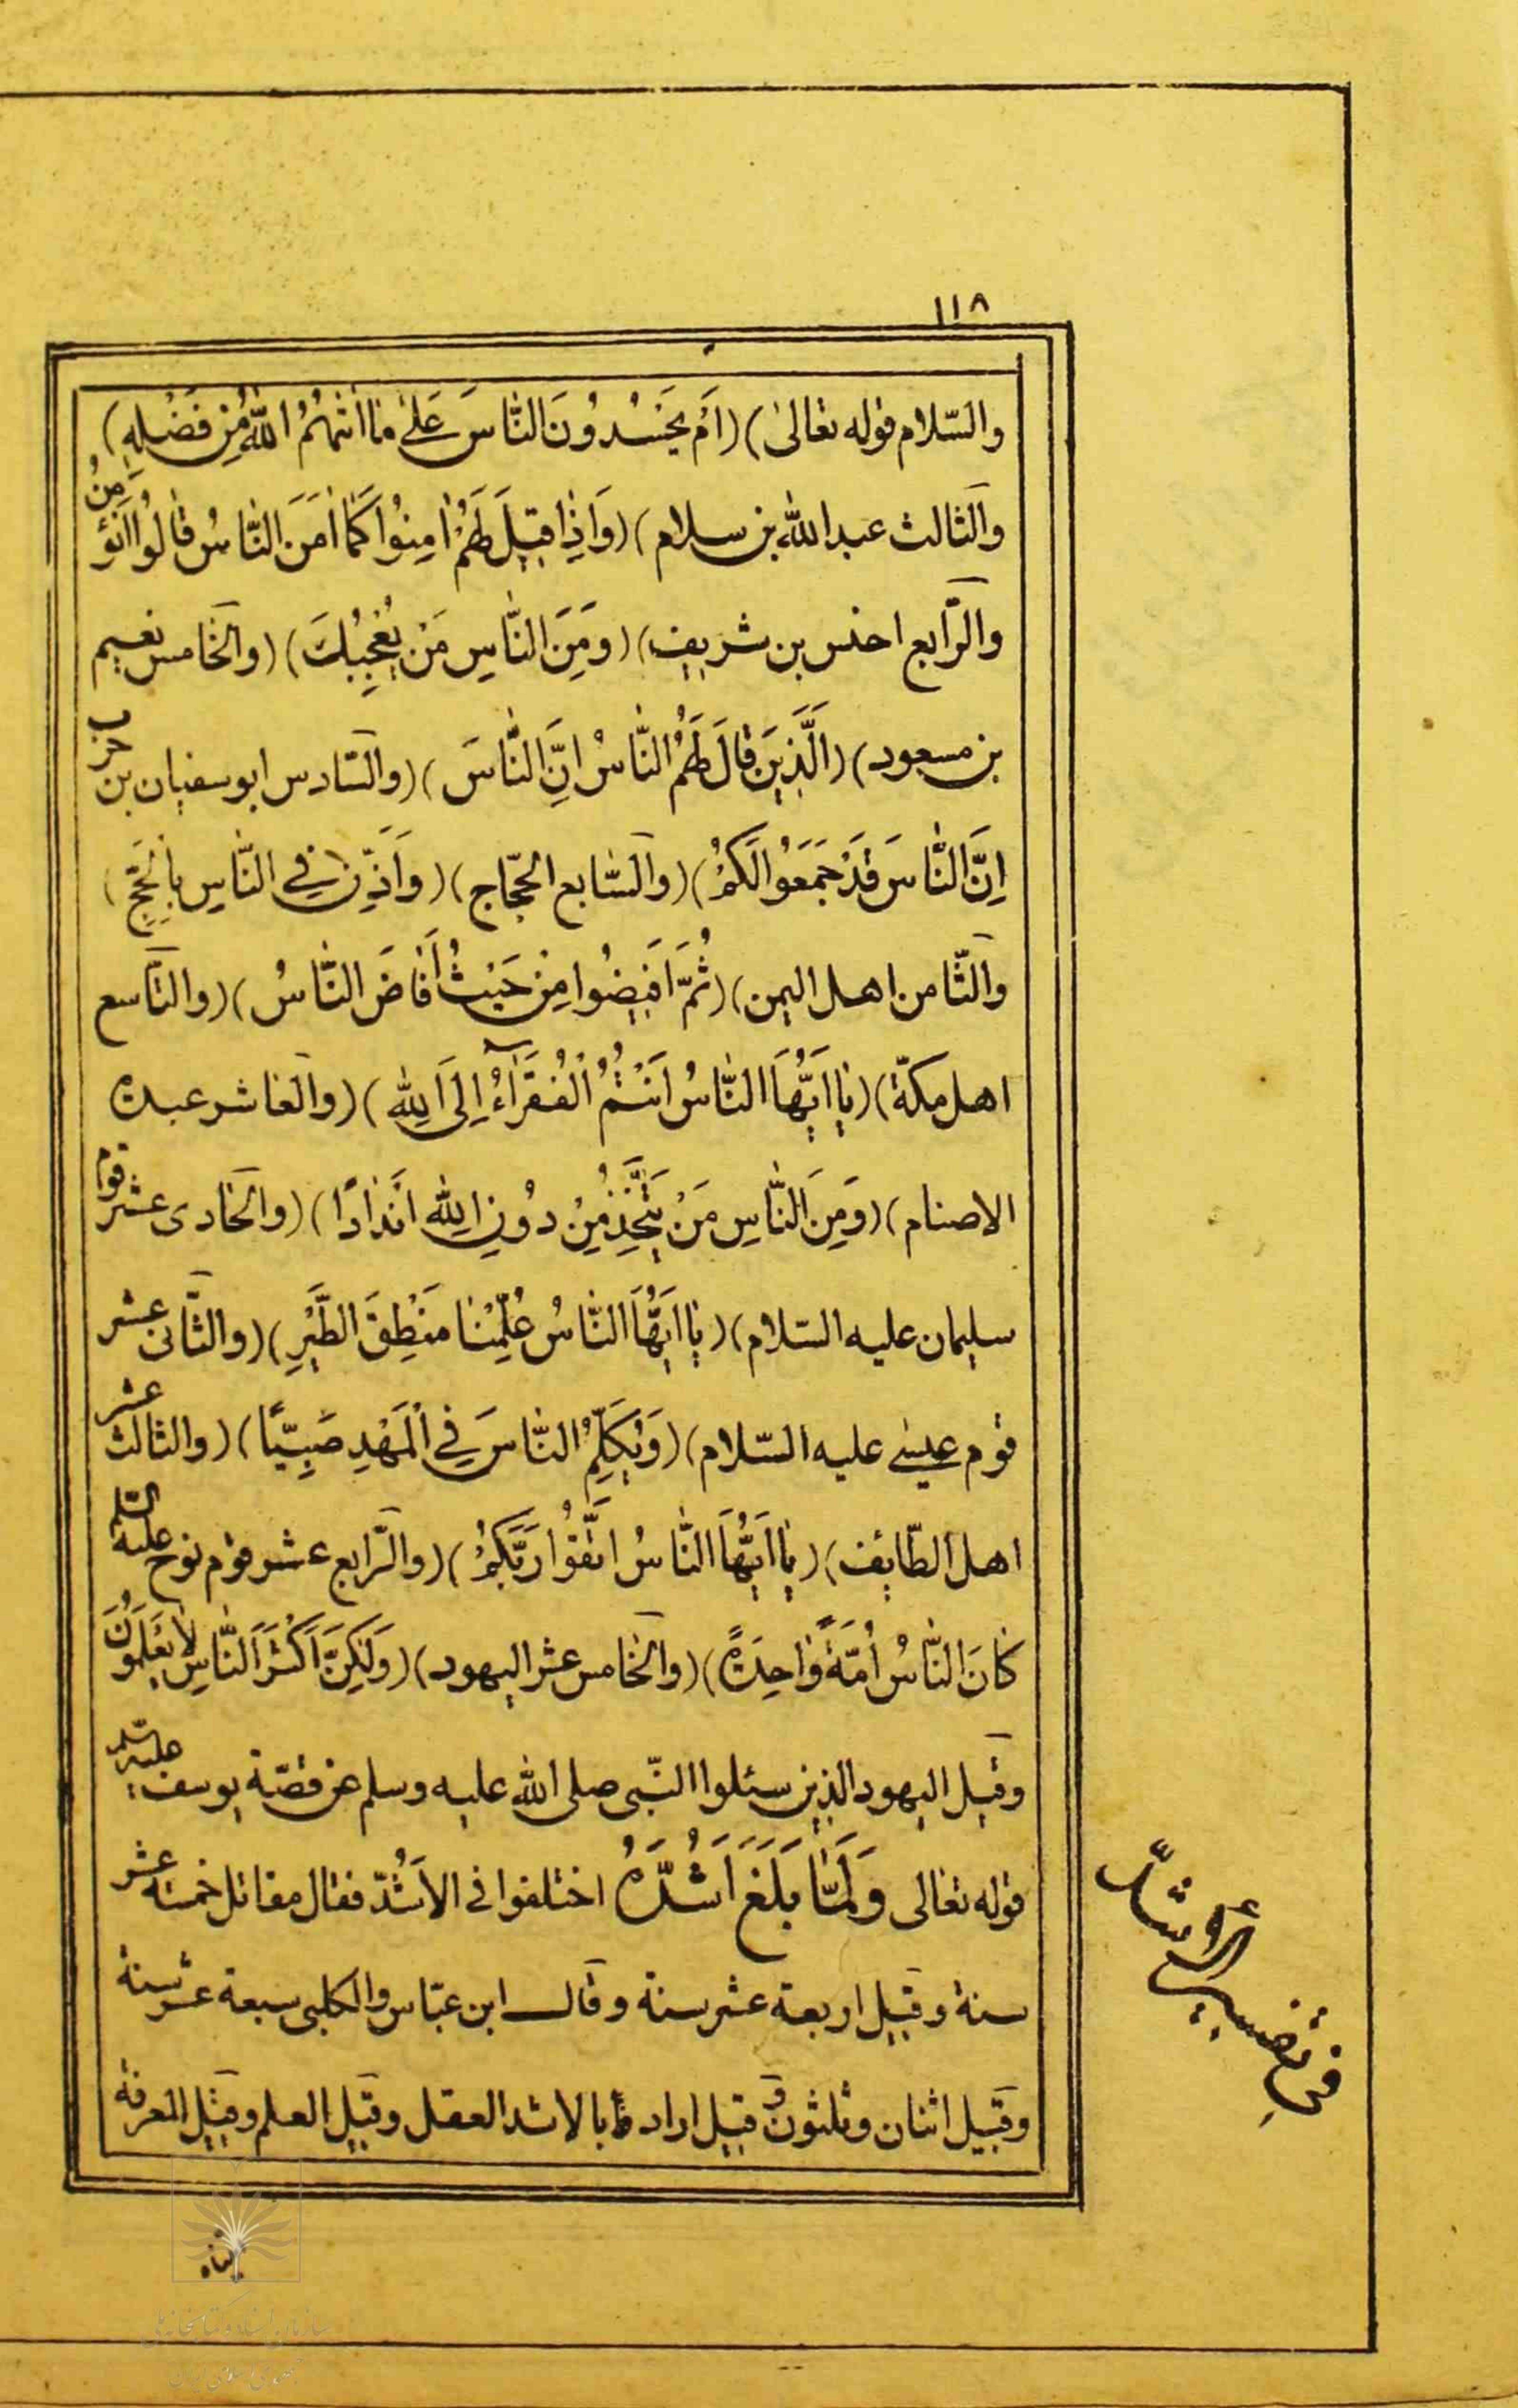 ١١٨
والسّلام قوله تعالىٰ) (اَمْ يَحْسُدُونَ النَّاسَ عَلىٰ مٰا اٰتٰيهُمُ اللّٰهُ مِنْ فَضْلِهِ)
والثالث عبد الله بن سلام) (وَاِذٰا قيٖلَ لَهُمْ اٰمِنُوا كَمٰا اٰمَنَ النَّاسُ قٰالُوا اَنُؤْمِنُ
والرّابع احنس بن شريف) (وَمِنَ النَّاسِ مَنْ يُعْجِبُكَ) (والخامس نعيم
بن مسعود) (اَلَّذٖينَ قٰالَ لَهُمُ النَّاسُ اِنَّ النَّاسَ) (والسّادس ابو سفيان بن حرب
اِنَّ النَّاسَ قَدْ جَمَعُوا لَكُمْ) (والسّابع الحجّاج) (وَاَذِّنْ فِي النَّاسِ بِالْحَجِّ)
والثّامن اهل اليمن) (ثُمَّ اَفٖيضُوا مِنْ حَيْثُ اَفٰاضَ النَّاسُ) (والتاسع
اهل مكّة) (يٰا اَيُّهَا النَّاسُ اَنْتُمُ الْفُقَرٰاۤءُ اِلَى اللّٰهِ) (والعاشر عبدة
الاصنام) (وَمِنَ النَّاسِ مَنْ يَتَّخِذُ مِنْ دُونِ اللّٰهِ اَنْدٰادًا) (والحادى عشر قوم
سليمان عليه السّلام) (يٰا اَيُّهَا النَّاسُ عُلِّمْنٰا مَنْطِقَ الطَّيْرِ) (والثّانى عشر
قوم عيسى عليه السّلام) (وَيُكَلِّمُ النَّاسَ فِي الْمَهْدِ صَبِيًّا) (والثالث عشر
اهل الطّايف) (يٰا اَيُّهَا النَّاسُ اتَّقُوا رَبَّكُمْ) (والرّابع عشر قوم نوح عليه السّلم
كٰانَ النَّاسُ اُمَّةً وٰاحِدَةً) (والخامس عشر اليهود) (وَلٰكِنَّ اَكْثَرَ النَّاسِ لٰا يَعْلَمُونَ
وقيل اليهود الذين سئلوا النّبى صلى الله عليه وسلم عن قصّة يوسف عليه السلم
قوله تعالى وَلَمّٰا بَلَغَ اَشُدَّهُ اختلفوا فى الاَشُدّ فقال مقاتل خمسة عشر
سنة وقيل اربعة عشر سنة وقال ابن عبّاس والكلبى سبعة عشر سنة
وقيل اثنان وثلثون و قيل اراد بالاشد العقل وقيل العلم وقيل المعرفة
فى تفسير الأشدّ